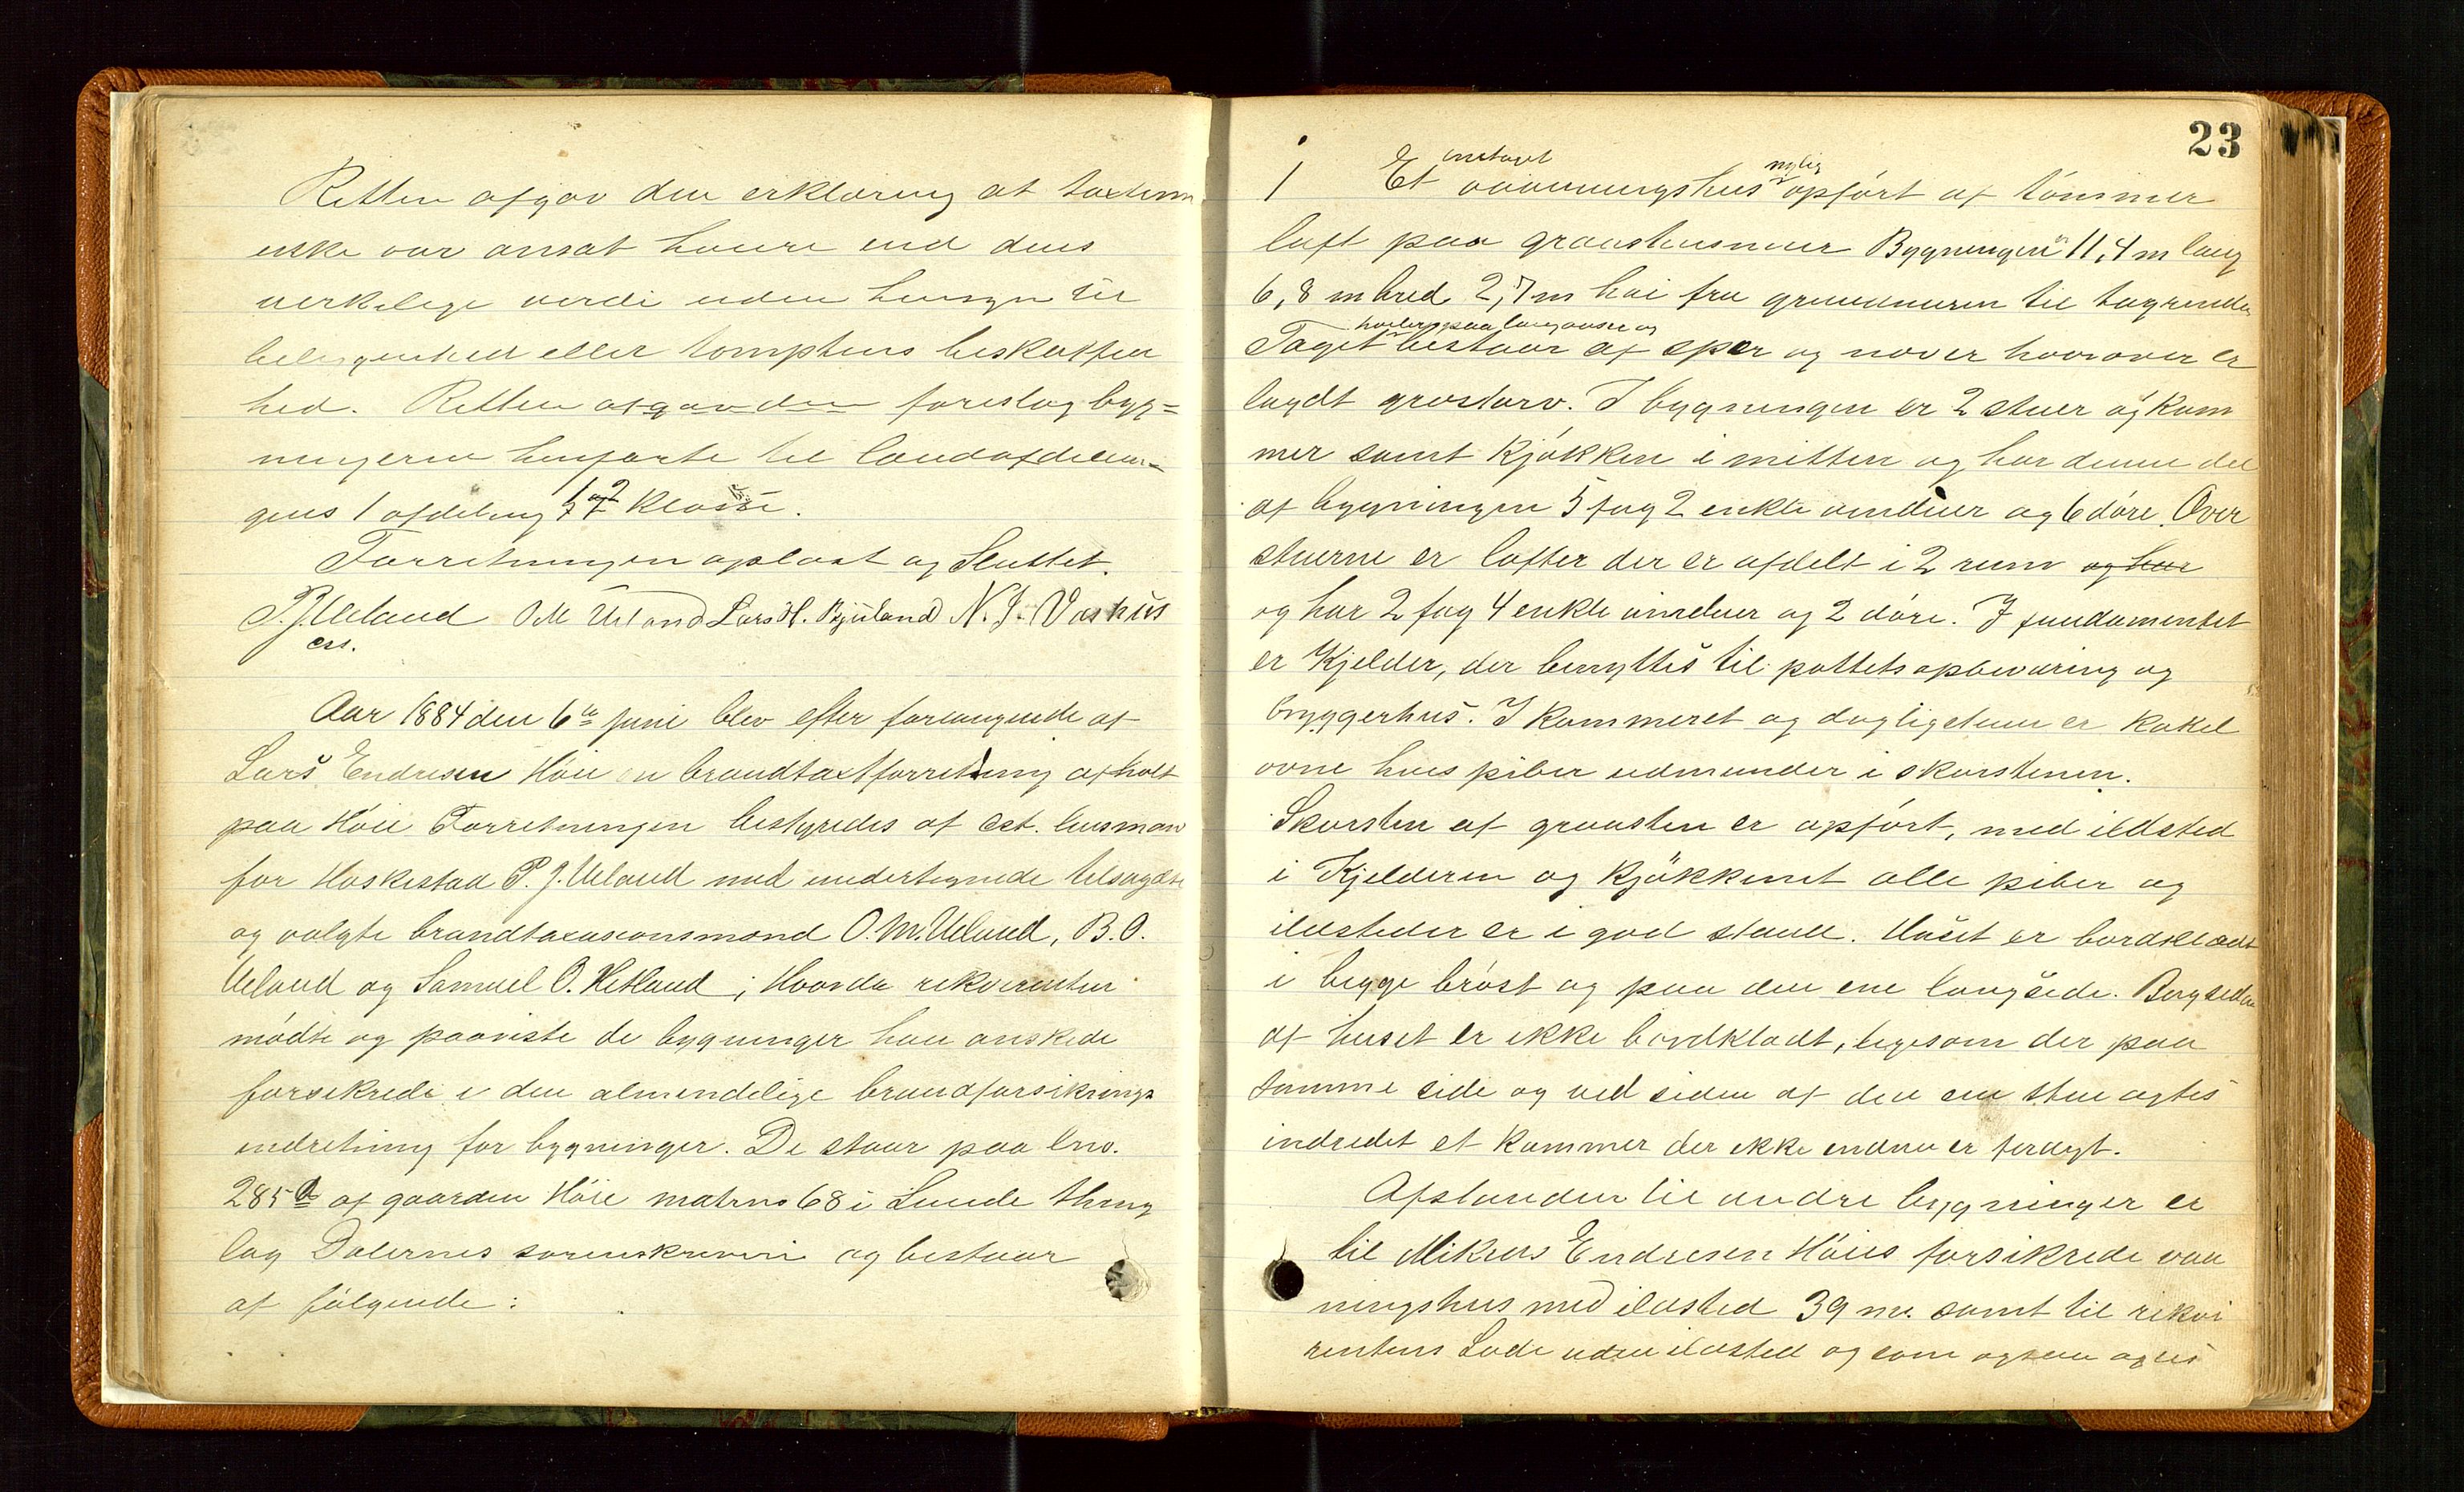 Retten afgav den erklæring at taxterne
ikke var ansat høiere end dens
verkelige verdi uden hensyn til
beliggenhed eller tomptens beskaffen
hed. Retten afgav den foreslog byg=
ningerne henførte til landafdelin-
gens 1 afdeling 1 og 2 klasse.
Forretningen oplæst og Sluttet.
P. J. Ueland O M Ueland Lars H. Bjuland N. J. Vashus
ess.
Aar 1884 den 6te juni blev efter forlangende af
Lars Endresen Høie en brandtaxtforretning afholt
paa Høie Forretningen bestyredes af est. lensman
for Heskestad P. J. Ueland med undertegnede tilsagdte
og valgte brandtaxasionsmænd O. M. Ueland, B. O.
Ueland og Samuel O. Hetland; Hvorda rekvirenten
mødte og paaviste de bygninger han ønskede
forsikrede i den almendelige brandforsikrings
indretning for bygninger. De staar paa lno.
285 a af gaarden Høie matrno 68 i Lunde thing
lag Dalernes sorenskriveri og bestaar
af følgende:
23
1 Et indtaget vaaningshus nylig opført af tømmer
laft paa graastensmuur Bygningen er 11,4 m lang
6,8 m bred 2,7 m høi fra grundmuren til tagrenden
Taget hviler paa langaase og bestaar af sper og næver hvorover er
lagdt græstørv. I bygningen er 2 stuer og kam
mer samt kjøkken i mitten og har denne del
af bygningen 5 fag 2 enkle vinduer og 6 døre. Over
stuerne er lofter der er afdelt i 2 rum og har
og har 2 fag 4 enkle vinduer og 2 døre. I fundamentet
er Kjelder, der benyttes til pottetsopbevaring og
bryggerhus. I kammeret og dagligstuen er kakel
ovne hvis piber udmunder i skorstenen.
Skorsten af graasten er opført, med ildsted
i Kjelderen og Kjøkkenet alle piber og
ildsteder er i god stand. Huset er bordklædt
i begge brøst og paa den ene langside. Bergsiden
af huset er ikke bordklædt, ligesom der paa
samme side og ved siden af den ene stue agtes
indredet et kammer der ikke endnu er ferdigt.
Afstanden til andre bygninger er
til Mikkel Endresen Høies forsikrede vaa
ningshus med ildsted 39 m. samt til rekvi
rentens Lade uden ildsted og som ogsaa agtes